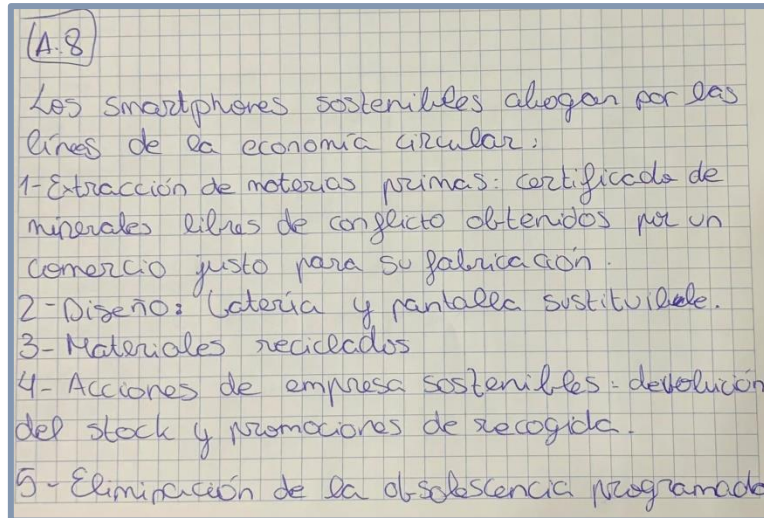 A.8
Los smartphones sostenibles abogan por las
líneas de la economía circular:
1-Extracción de materias primas: certificado de
minerales libres de conflicto obtenidos por un
comercio justo para su fabricación.
2-Diseño: batería y pantalla sustituible.
3-Materiales reciclados
4-Acciones de empresa sostenibles: devolución
del stock y promociones de recogida.
5-Eliminación de la obsolescencia programada